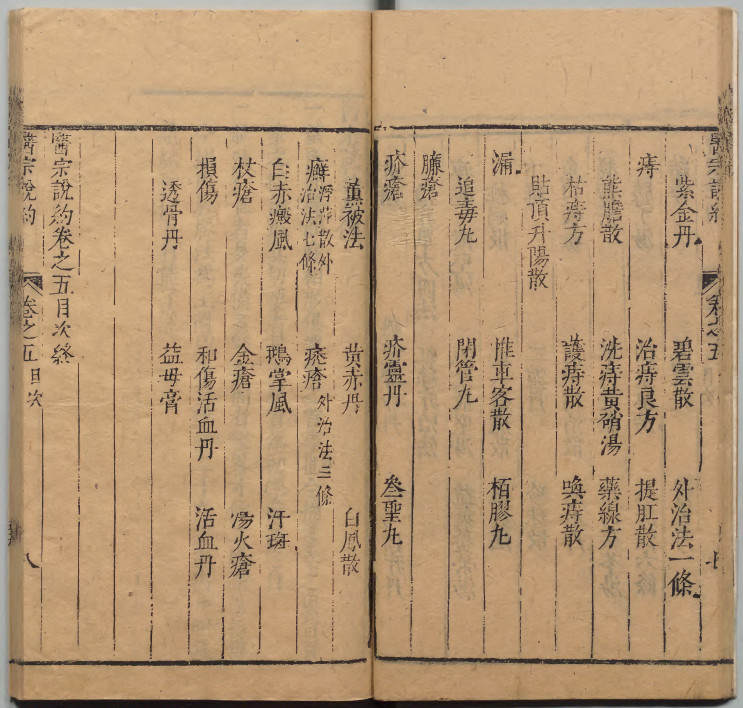 醫宗說約 卷之五 七
紫金丹 碧雲散 外治法一條
痔 治痔良方 提肛散
熊膽散 洗痔黃硝湯 藥線方
枯痔方 護痔散 喚痔散
貼頂升陽散
漏 惟車客散 栢膠丸
追毒丸 閉管丸
臁瘡
疥瘡 疥靈丹 叄聖丸
薰被法 黃赤丹 白鳳散
癬 浮萍散外治法七條 㾦瘡 外治法三條
白赤癜風 鵝掌風 汗斑
杖瘡 金瘡 湯火瘡
損傷 和傷活血丹 活血丹
透骨丹 益母膏
醫宗說約卷之五目次終
醫宗說約 卷之五 目次 八